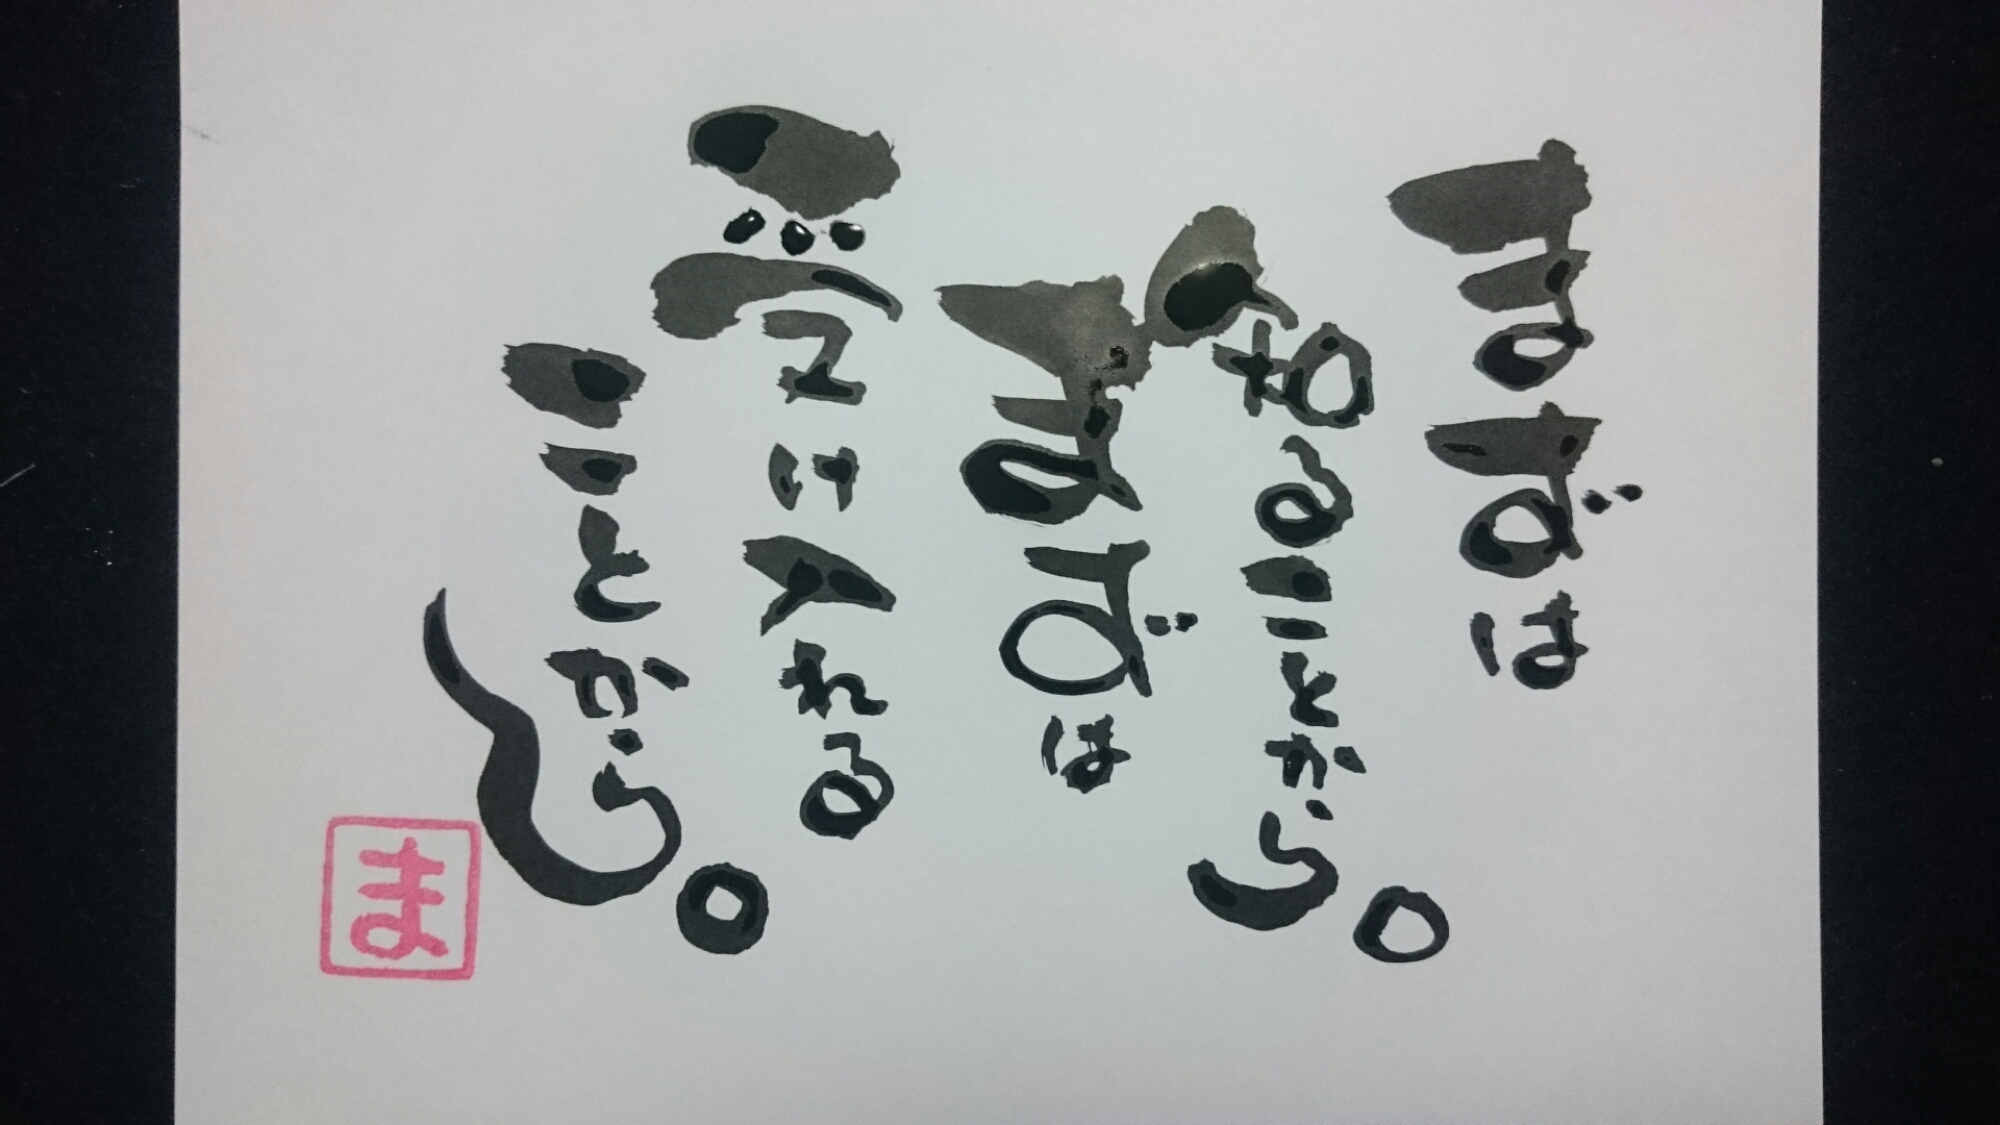 まずは
知ることから。
まずは
受け入れる
ことから。
ま